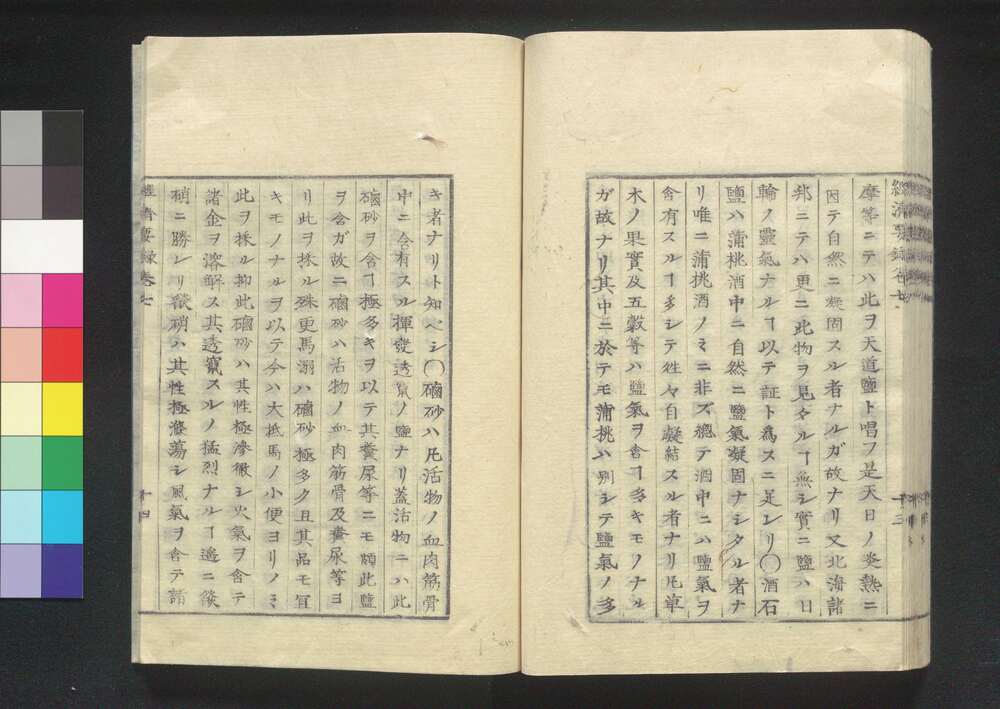 經濟要録卷七
摩等ニテハ此ヲ天道鹽ト唱フ是天日ノ炎熱ニ
因テ自然ニ凝固スル者ナルガ故ナリ又北海諸
邦ニテハ更ニ此物ヲ見タルヿ無シ實ニ鹽ハ日
輪ノ靈氣ナルヿ以テ証ト爲スニ足レリ〇酒石
鹽ハ蒲桃酒中ニ自然ニ鹽氣凝固ナシタル者ナ
リ唯ニ蒲桃酒ノミニ非ズ總テ酒中ニハ鹽氣ヲ
含有スルヿ多シテ徃々自凝結スル者ナリ凡草
木ノ果實及五穀等ハ鹽氣ヲ含ヿ多キモノナル
ガ故ナリ其中ニ於テモ蒲桃ハ別シテ鹽氣ノ多
十三
キ者ナリト知ベシ〇磠砂ハ凡活物ノ血肉筋骨
中ニ含有スル揮發透竄ノ鹽ナリ蓋活物ニハ此
磠砂ヲ含ヿ極多キヲ以テ其糞尿等ニモ頗此鹽
ヲ含ガ故ニ磠砂ハ活物ノ血肉筋骨及糞尿等ヨ
リ此ヲ採ル殊更馬溺ハ磠砂極多ク且其品モ冝
キモノナルヲ以テ今ハ大抵馬ノ小便ヨリノミ
此ヲ採ル抑此磠砂ハ其性極滲徹シ火氣ヲ含テ
諸金ヲ溶解ス其透竄スルノ猛烈ナルヿ遙ニ燄
硝ニ勝レリ燄硝ハ其性極滌蕩シ風氣ヲ含テ諸
經濟要録卷七
十四